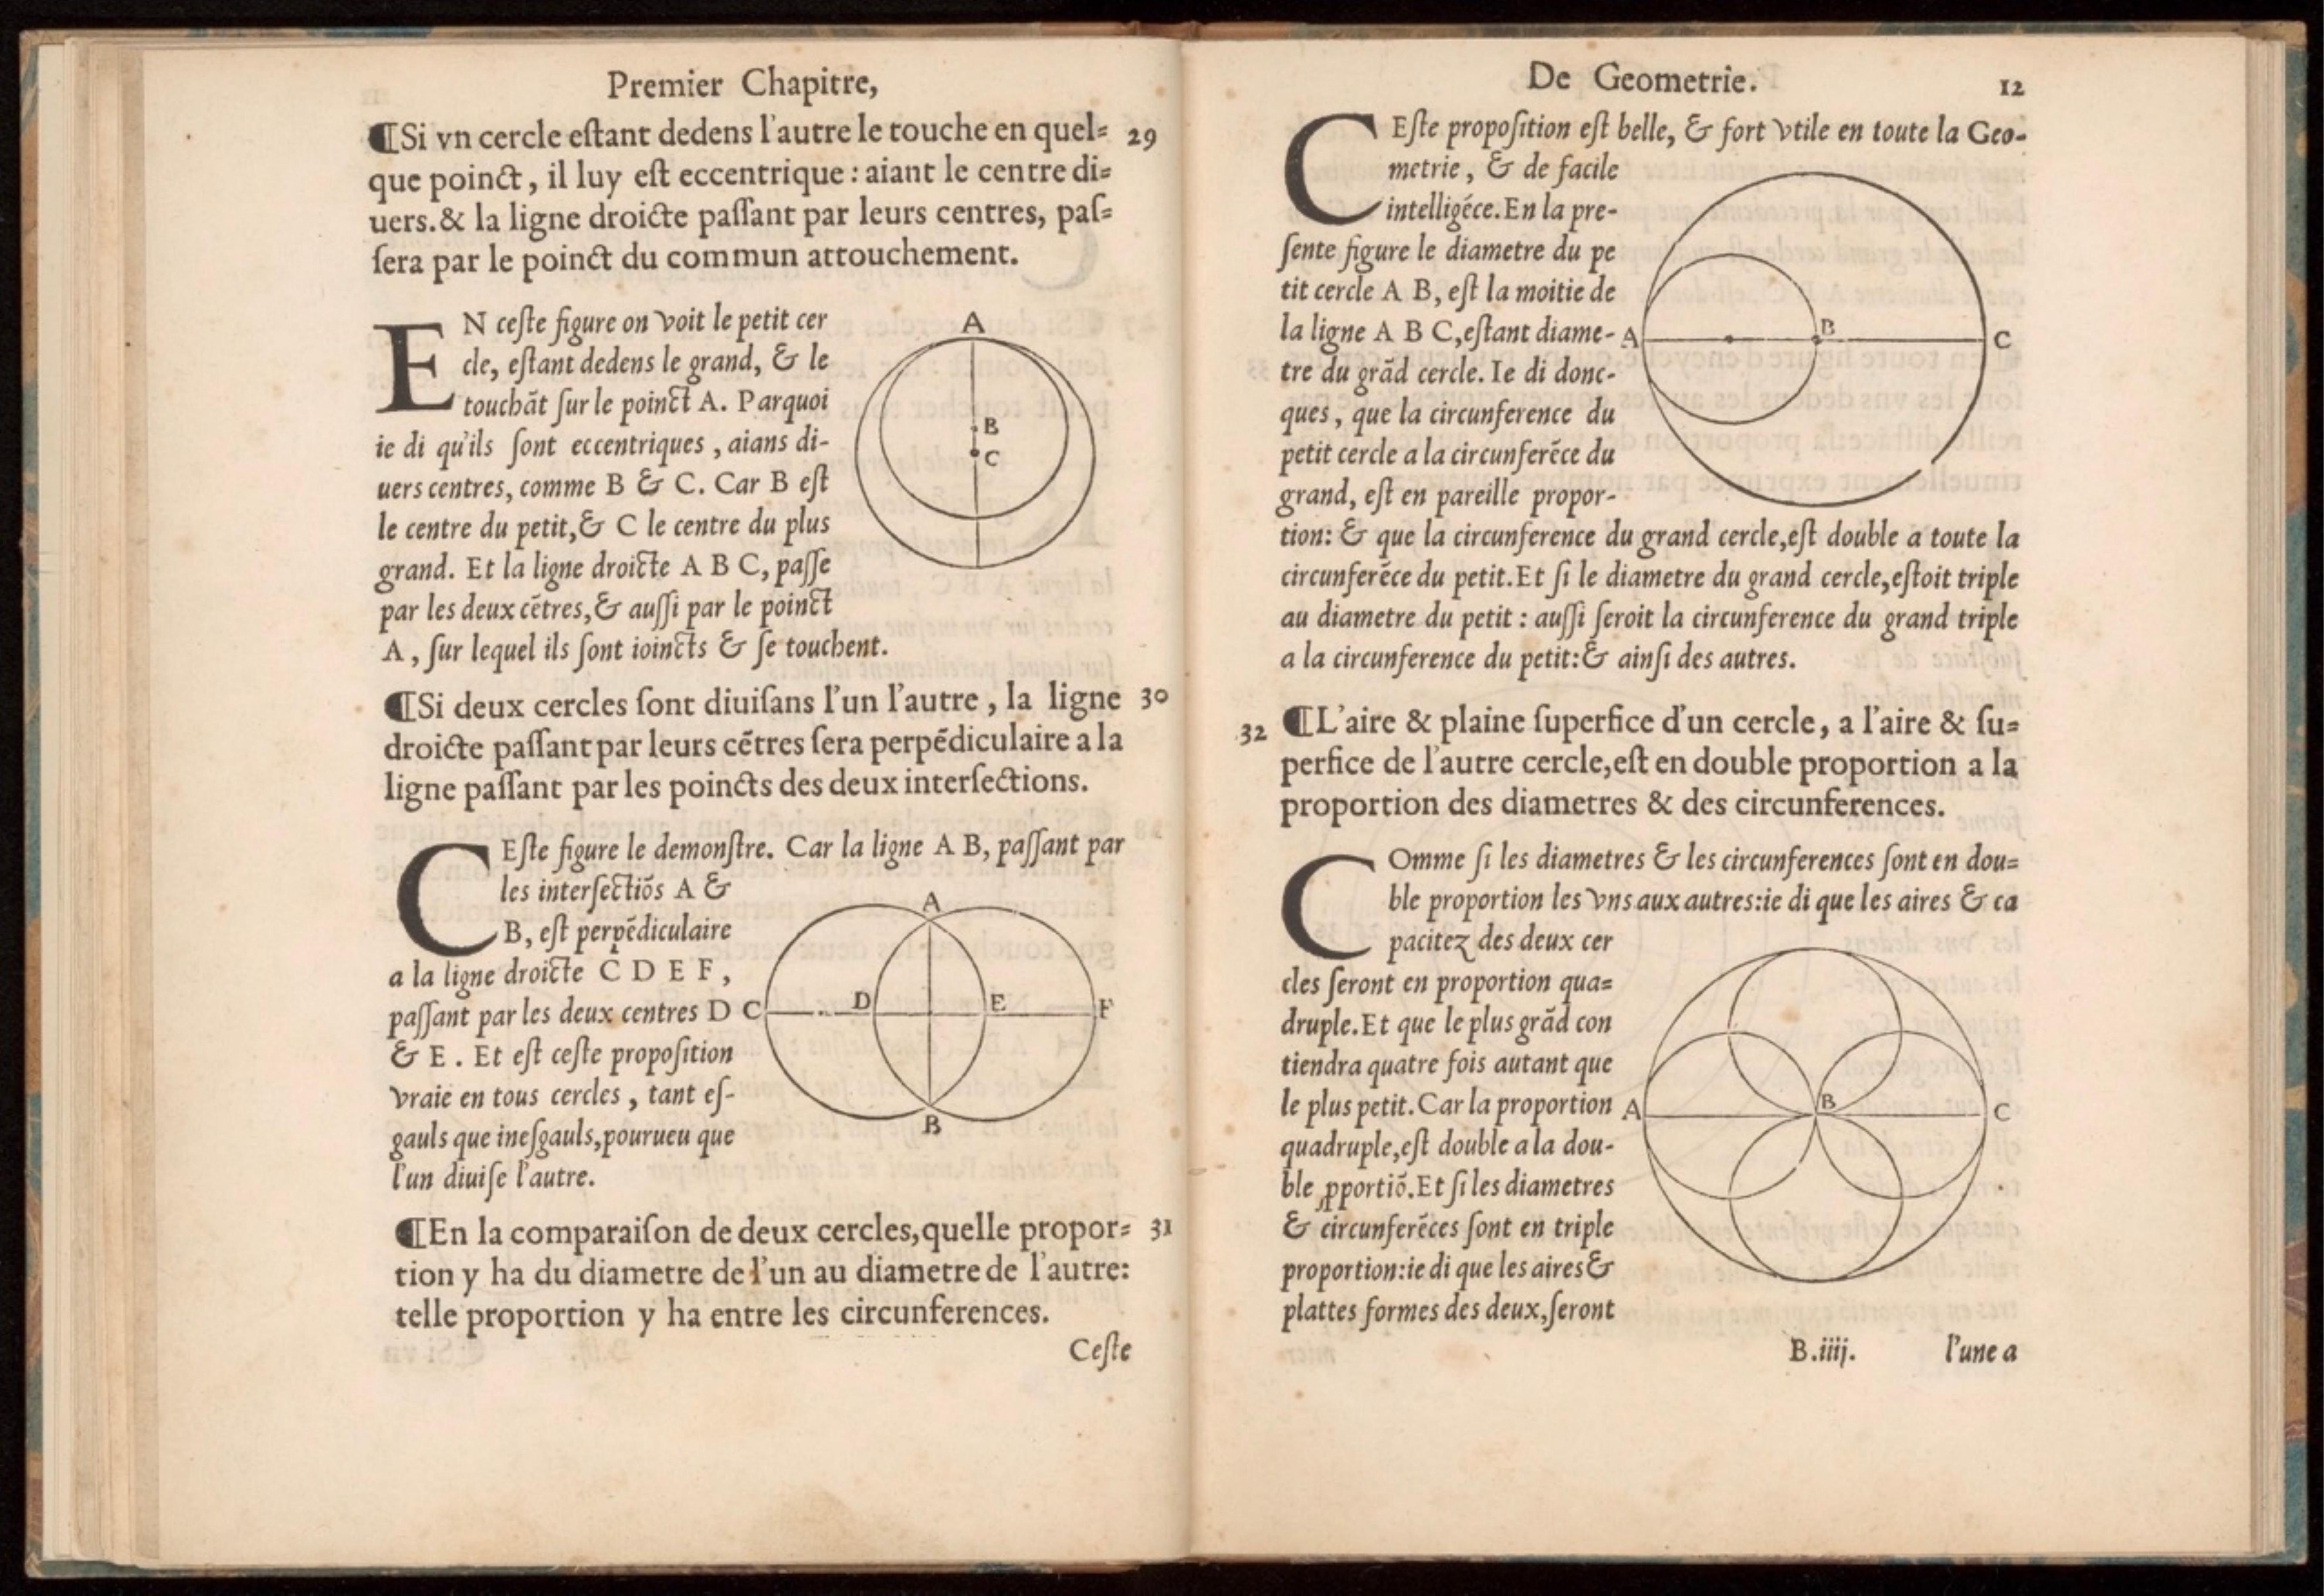 Premier Chapitre,
⁋Si vn cercle eſtant dedens l'autre le touche en quel= 29
que poinct, il luy eſt eccentrique : aiant le centre di=
uers.& la ligne droicte paſſant par leurs centres, paſ=
ſera par le poinct du commun attouchement.
EN ceſte figure on voit le petit cer
cle, eſtant dedens le grand, & le
touchãt ſur le poinct A. Parquoi
ie di qu'ils ſont eccentriques, aians di-
uers centres, comme B & C. Car B eſt
le centre du petit,& C le centre du plus
grand. Et la ligne droicte A B C, paſſe
par les deux cẽtres,& auſſi par le poinct
A, ſur lequel ils ſont ioincts & ſe touchent.
A
B
C
⁋Si deux cercles ſont diuiſans l'un l'autre, la ligne 30
droicte paſſant par leurs cẽtres ſera perpẽdiculaire a la
ligne paſſant par les poincts des deux interſections.
CEſte figure le demonſtre. Car la ligne A B, paſſant par
les interſectiõs A &
B, eſt perpẽdiculaire
a la ligne droicte C D E F,
paſſant par les deux centres D
& E. Et eſt ceſte propoſition
vraie en tous cercles, tant eſ-
gauls que ineſgauls,pourueu que
l'un diuiſe l'autre.
A
C D E F
B
⁋En la comparaiſon de deux cercles,quelle propor= 31
tion y ha du diametre de l'un au diametre de l'autre:
telle proportion y ha entre les circunferences.
Ceſte
De Geometrie. 12
CEſte propoſition eſt belle, & fort vtile en toute la Geo-
metrie, & de facile
intelligẽce.En la pre-
ſente figure le diametre du pe
tit cercle A B, eſt la moitie de
la ligne A B C,eſtant diame-
tre du grãd cercle. Ie di donc-
ques, que la circunference du
petit cercle a la circunferẽce du
grand, eſt en pareille propor-
tion: & que la circunference du grand cercle,eſt double a toute la
circunferẽce du petit.Et ſi le diametre du grand cercle,eſtoit triple
au diametre du petit : auſſi ſeroit la circunference du grand triple
a la circunference du petit:& ainſi des autres.
A B C
32 ⁋L'aire & plaine ſuperfice d'un cercle, a l'aire & ſu=
perfice de l'autre cercle,eſt en double proportion a la
proportion des diametres & des circunferences.
COmme ſi les diametres & les circunferences ſont en dou=
ble proportion les vns aux autres:ie di que les aires & ca
pacitez des deux cer
cles ſeront en proportion qua=
druple.Et que le plus grãd con
tiendra quatre fois autant que
le plus petit.Car la proportion
quadruple,eſt double a la dou-
ble ꝓportiõ.Et ſi les diametres
& circunferẽces ſont en triple
proportion:ie di que les aires &
plattes formes des deux,ſeront
A B C
B.iiij. l'une a